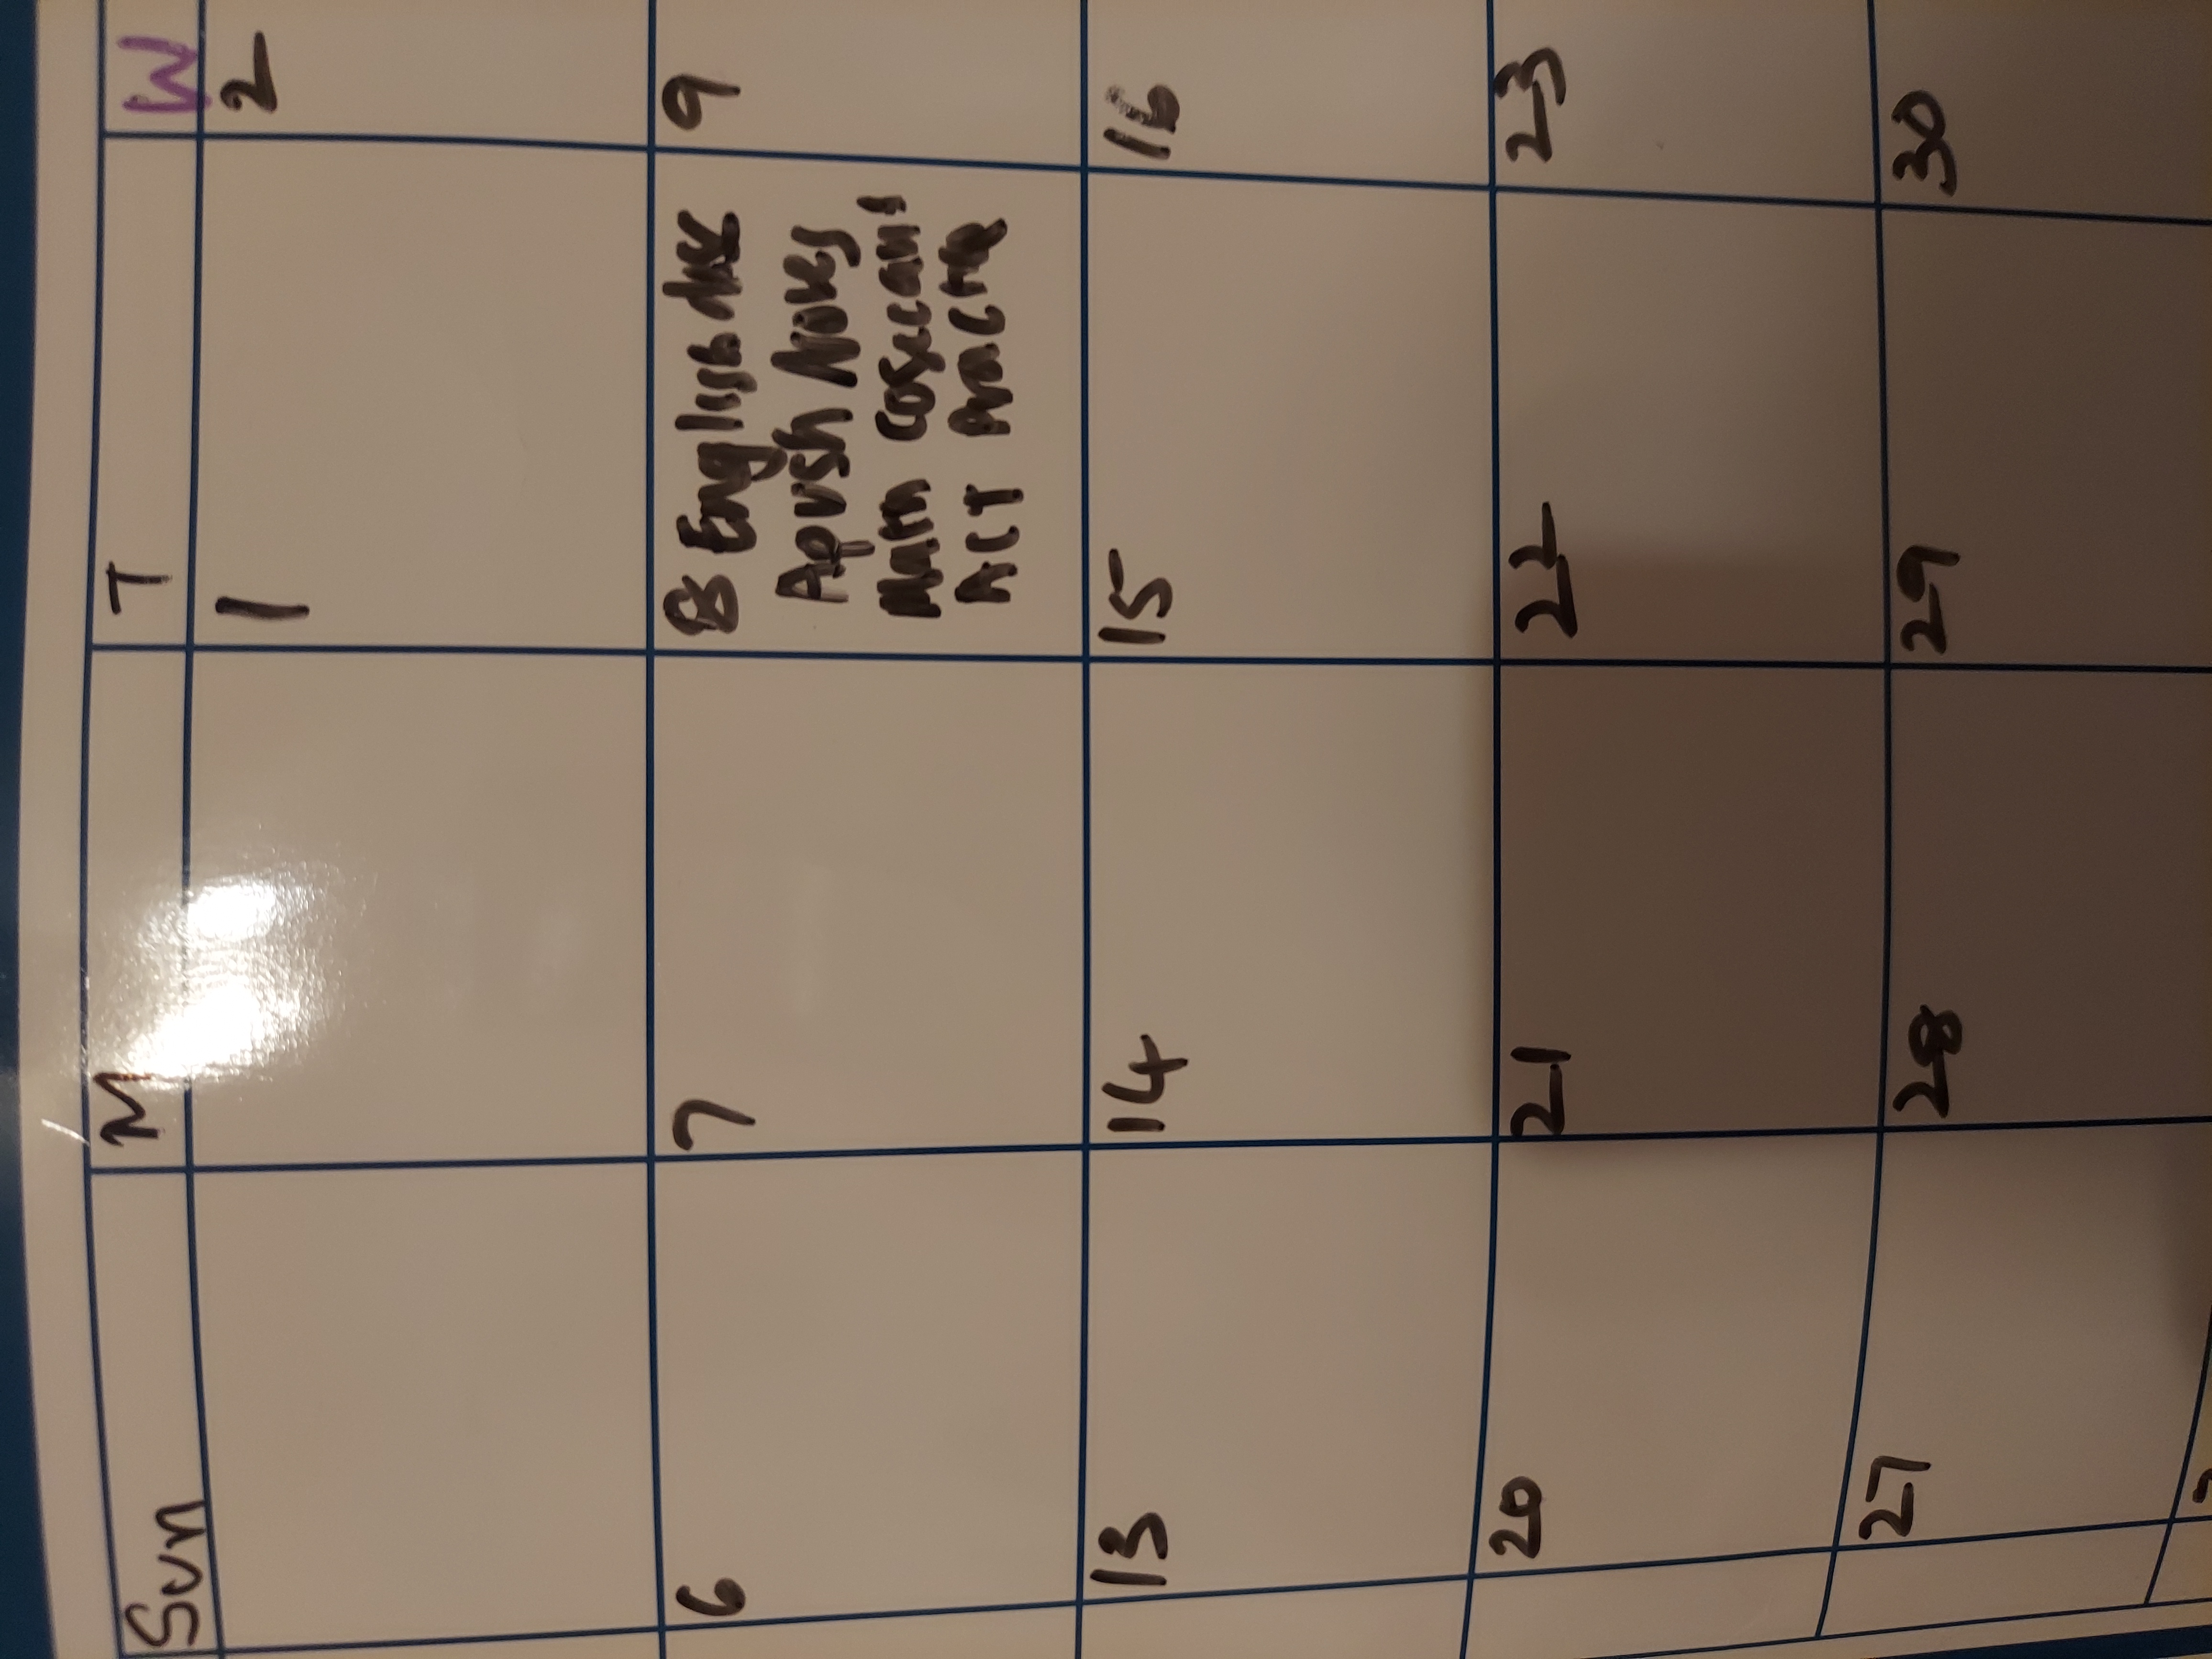 Sun M T W
1 2
6 7 8 English disc 9
Apush Notes
Math Cosecant
ACT Practice
13 14 15 16
20 21 22 23
27 28 29 30